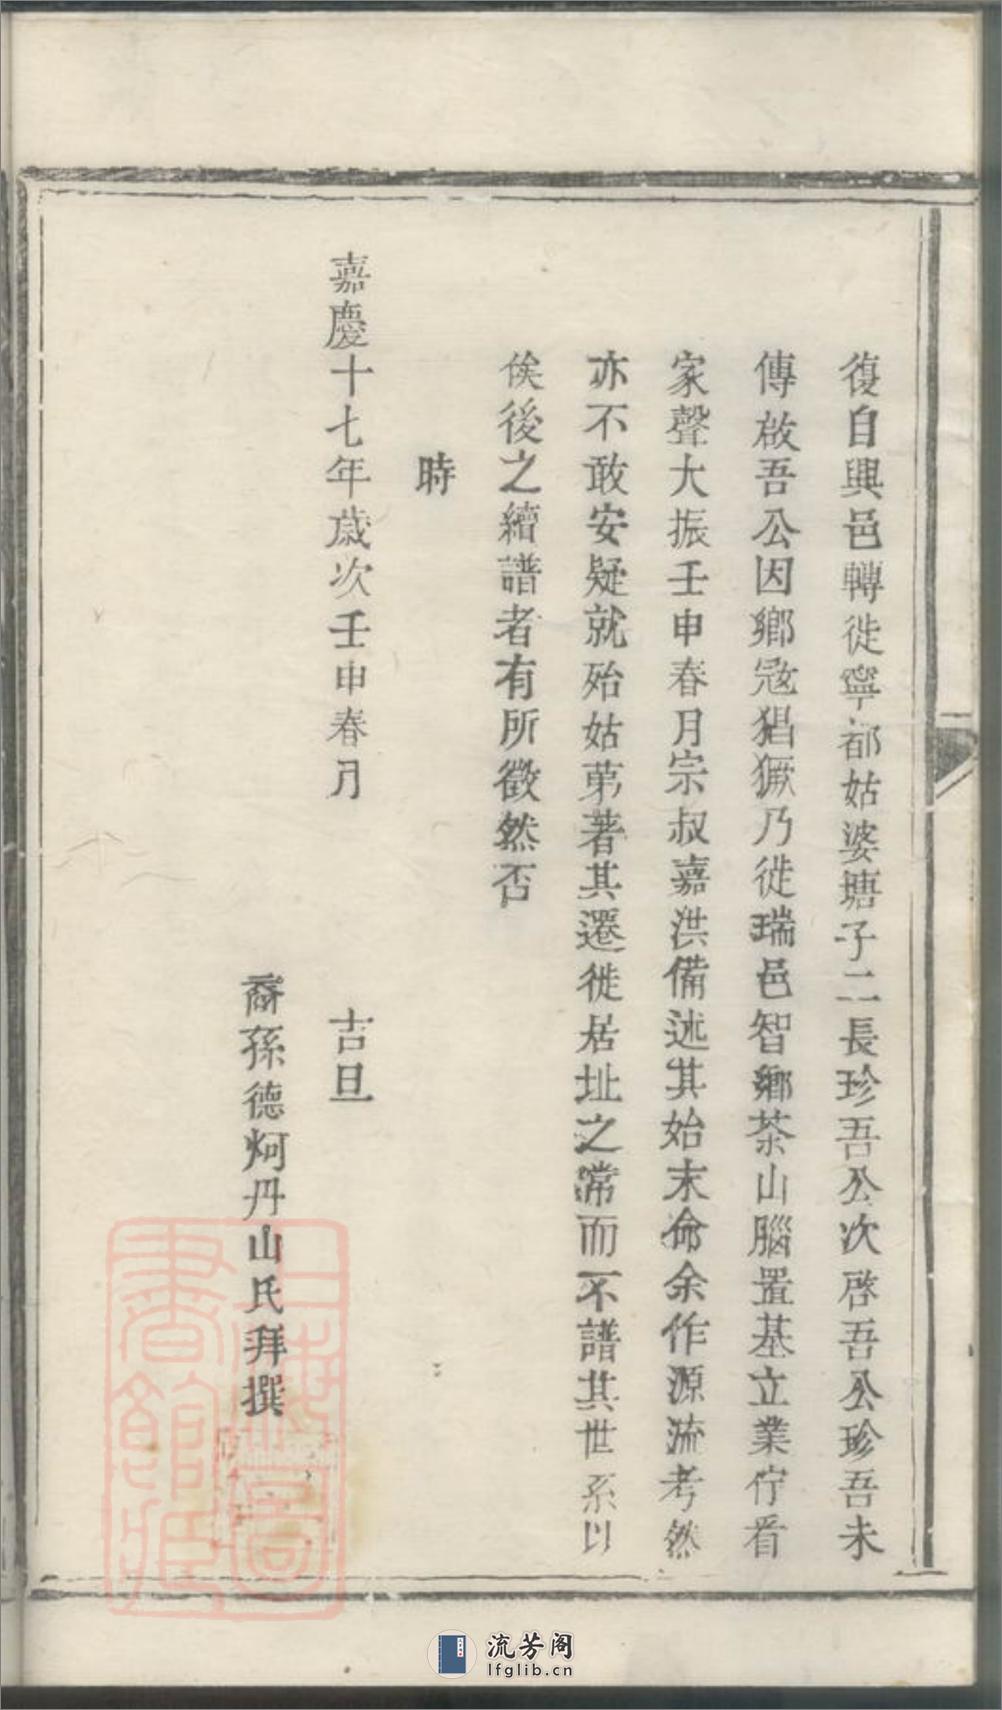 復自興邑轉徙寧都姑婆塘子二長珍吾公次啓吾公珍吾未
傳啟吾公因鄉冦猖獗乃徙瑞邑智鄉茶山腦置基立業佇看
家聲大振壬申春月宗叔嘉洪備述其始末命余作源流考然
亦不敢安疑就殆姑苐著其遷徙居址之常而不譜其世系以
俟後之續譜者有所徵然否
時
嘉慶十七年歲次壬申春月 吉旦
裔孫德炣丹山氏拜撰
上海圖書館藏
流芳阁
lfglib.cn